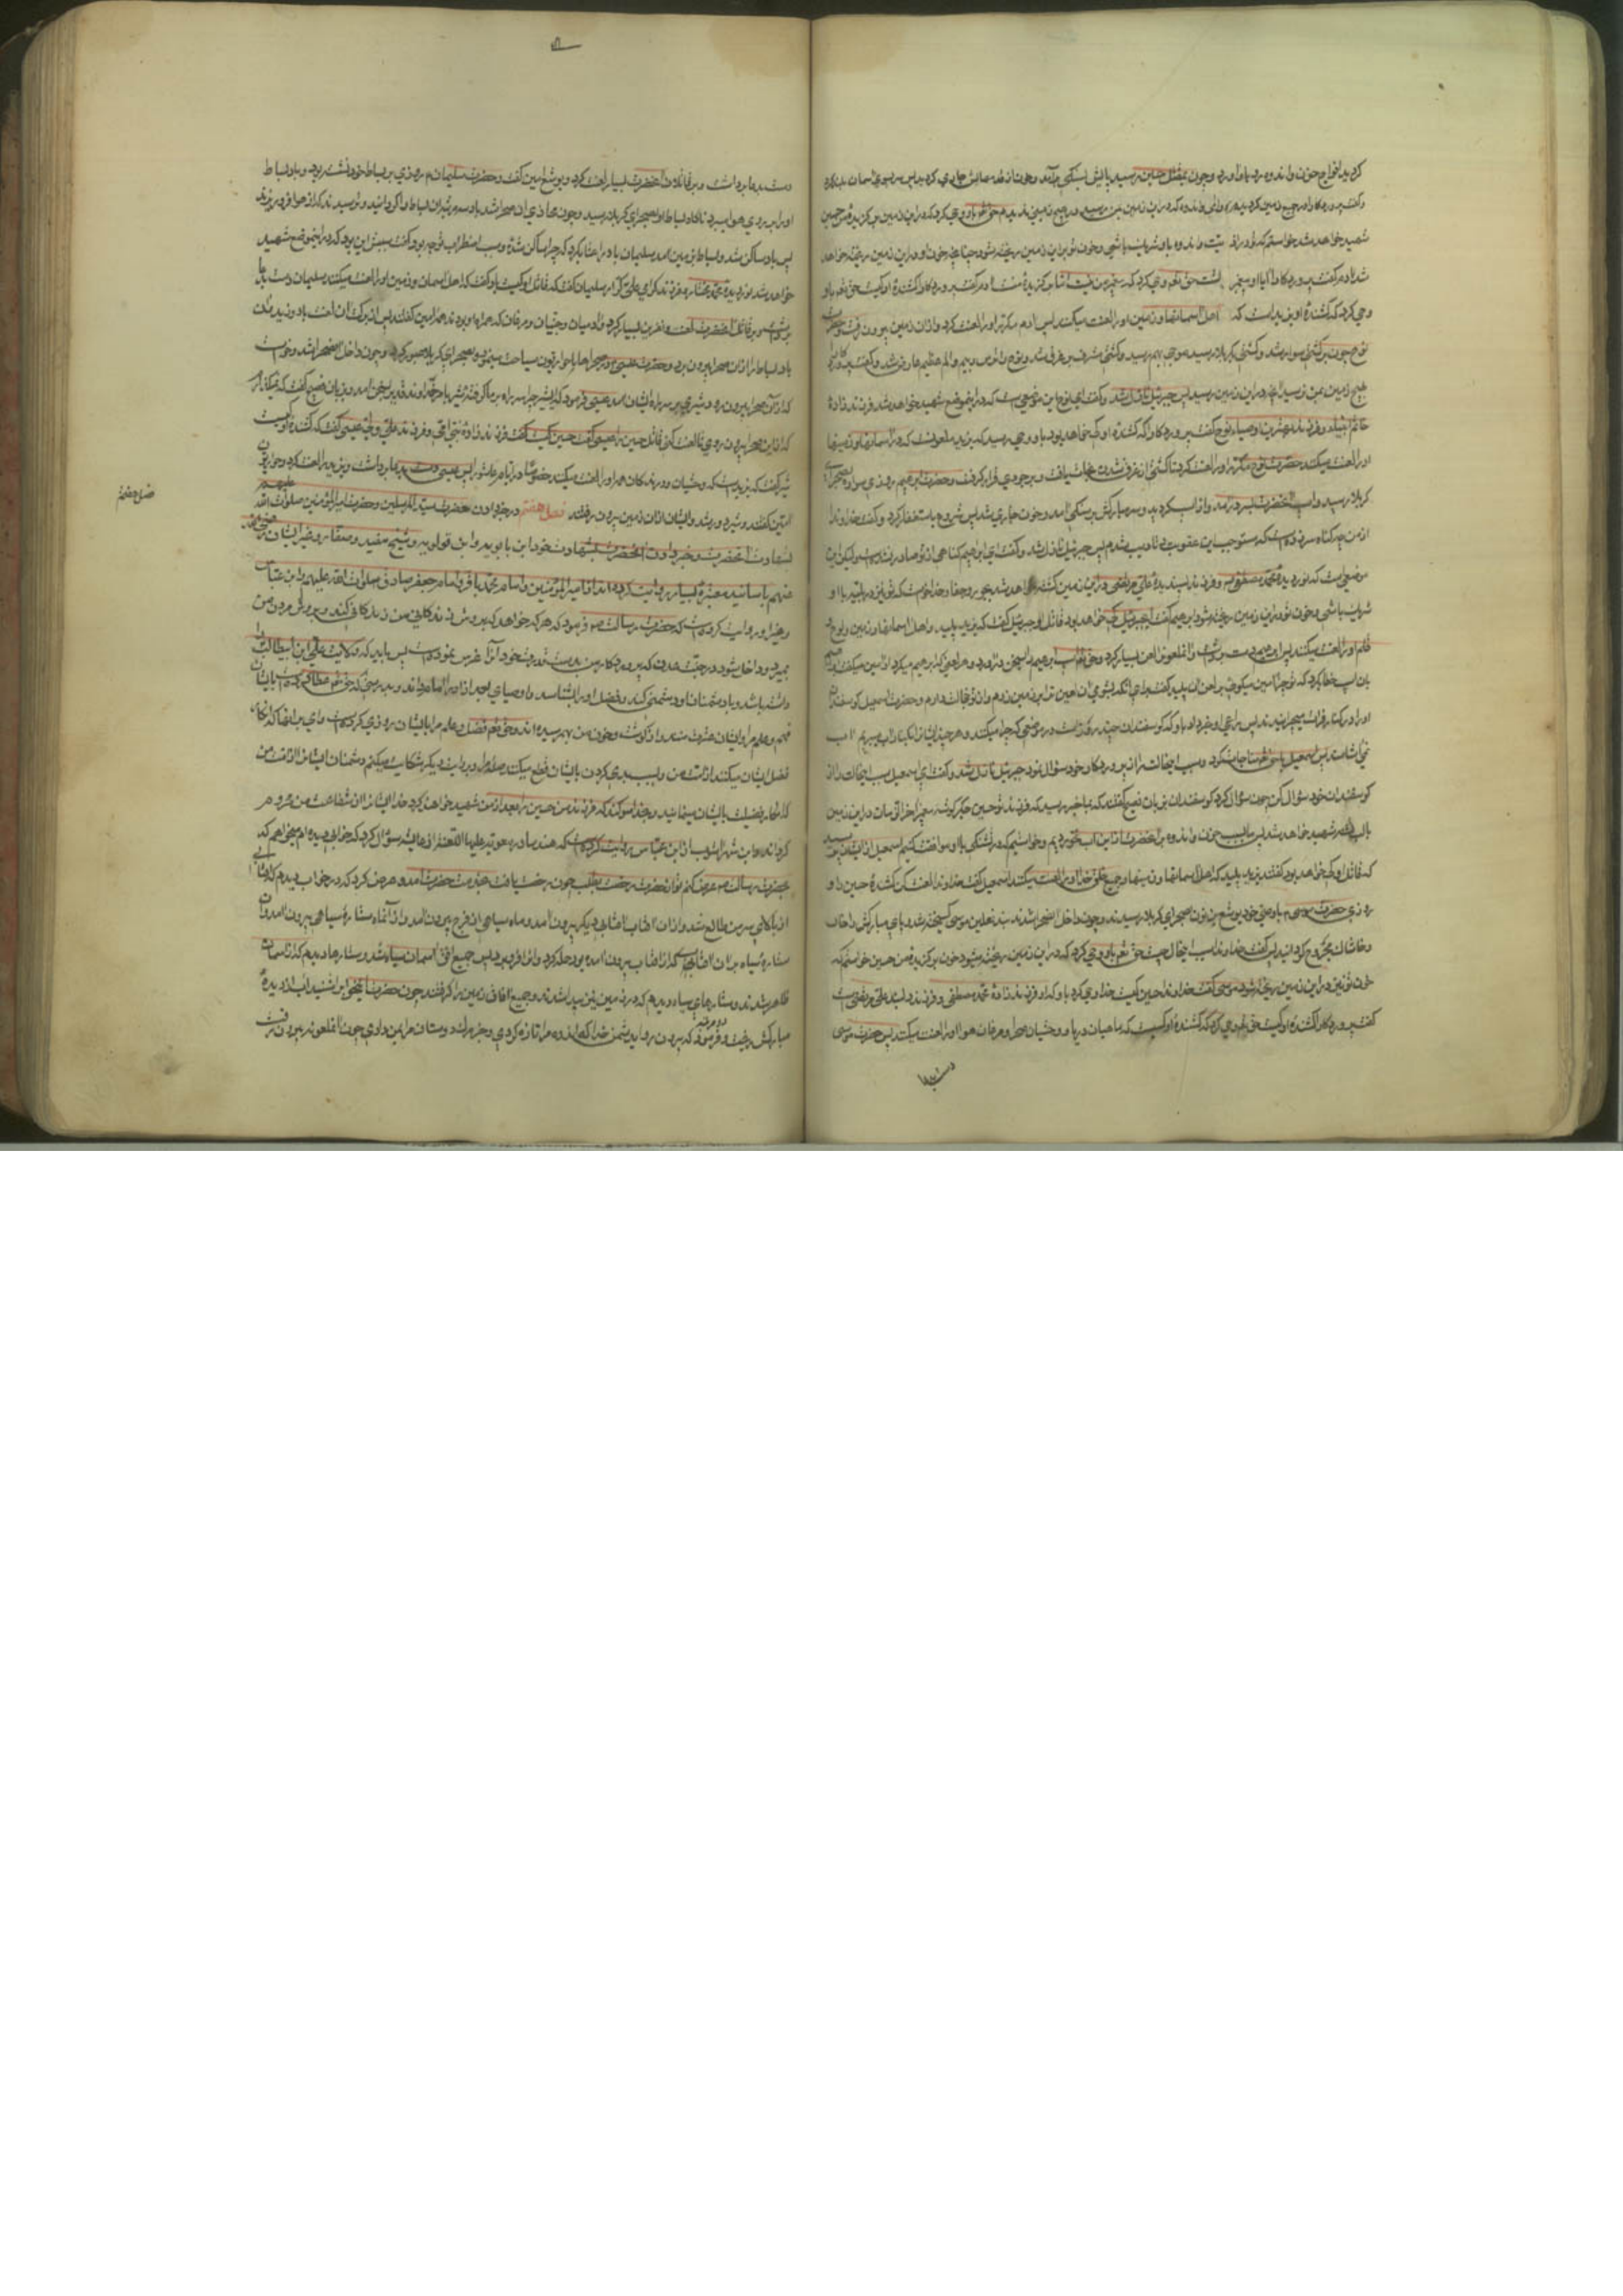 کردید امواج حزن و اندوه رو باو آورد و چون بمقتل حسین رسید پایش بسنگی برآمد و خون از قدمهایش جاری گردید پس سر بسوی آسمان بلند کرد
و گفت پروردگارا در جمیع زمین گردیدم و المی و اندوهی که در این زمین بمن رسید در هیچ زمینی ندیدم حق تعالی باو وحی کرد که در این زمین برگزیده من حسین
شهید خواهد شد خواستم که تو در اذیت و اندوه باو شریک باشی و خون تو بر این زمین ریخته شود چنانچه خون او در این زمین ریخته خواهد
شد آدم گفت پروردگارا آیا او پیغمبر است حق تعالی وحی کرد که پیغمبر من نیست اما برگزیده منست آدم گفت پروردگارا کشنده او کیست حق تعالی باو
وحی کرد که کشنده او یزید است که اهل آسمانها و زمین او را لعنت میکنند پس آدم مکرر او را لعنت کرد و از آن زمین بیرون رفت و حضرت
نوح چون بر کشتی سوار شد و کشتی بکربلا رسید موجی بهم رسید و کشتی مشرف بر غرق شد و نوح را خوف و بیم و الم عظیم عارض شد و گفت پروردگارا
هیچ زمین بمن نرسید آنچه در این زمین رسید پس جبرئیل نازل شد و گفت ای نوح این موضعی است که در اینموضع شهید خواهد شد فرزندزاده
خاتم انبیاء و فرزند بهترین اوصیاء نوح گفت پروردگارا که کشنده او که خواهد بود باو وحی رسید که یزید ملعونست که در آسمانها و زمینها
او را لعنت میکنند حضرت نوح مکرر او را لعنت کرد تا کشتی از غرق شدن نجات یافت و بر جودی قرار گرفت و حضرت ابرهیم روزی سواره بصحرای
کربلا رسید و اسب آنحضرت بسر درآمد و از اسب گردید و سر مبارکش بر سنگی آمد و خون جاری شد پس شروع باستغفار کرد و گفت خداوندا
از من چه گناه سر زده است که مستوجب این عقوبت و تادیب شدم پس جبرئیل نازل شد و گفت ای ابراهیم گناهی از تو صادر نشده است ولیکن این
موضعی است که نور دیده محمد مصطفی و فرزند پسندیده علی مرتضی در این زمین کشته خواهد شد بجور و جفا و خدا خواست که تو نیز در بلیه با او
شریک باشی و خون تو در این زمین ریخته شود ابرهیم گفت ای جبرئیل که خواهد بود قاتل او جبرئیل گفت که یزید پلید و اهل آسمانها و زمین و لوح و
قلم او را لعنت میکنند پس ابرهیم دست برداشت و آن ملعونرا لعن بسیار کرد و حق تعالی اسب ابرهیم را بسخن درآورد و هر لعنی که ابرهیم میکرد آمین میگفت ابرهیم
بآن اسب خطاب کرد که تو چرا آمین میگوئی بر لعن آن پلید گفت برای آنکه بشومی آن لعین ترا بر زمین زدم و از تو خجالت دارم و حضرت اسمعیل گوسفندان
او را در کنار فرات میچرانیدند پس راعی او خبر داد باو که گوسفندان چند روز است در موضعی که چرا میکنند و هر چند ایشانرا بکنار آب میبریم آب
نمی‌آشامند پس اسمعیل با حق تعالی مناجات کرد و سبب اینحالت را از پروردگار خود سؤال نمود جبرئیل نازل شد و گفت ای اسمعیل سبب اینحالت را از
گوسفندان خود سؤال کن چون سؤال کرد گوسفندان بزبان فصیح گفتند که بما خبر رسید که فرزند تو حسین جگرگوشه پیغمبر آخر الزمان در این زمین
با لب تشنه شهید خواهد شد پس ما بسبب حزن و اندوه بر آنحضرت از این آب نخوردیم و خواستیم که در تشنگی با او موافقت کنیم اسمعیل از ایشان پرسید
که قاتل او که خواهد بود گفتند یزید پلید که اهل آسمانها و زمینها و جمیع خلق خدا او را لعنت میکنند اسمعیل گفت خداوندا لعنت کن کشنده حسین را و
روزی حضرت موسی با وصی خود یوشع بن نون بصحرای کربلا رسیدند و چون داخل آنصحرا شدند بند نعلین موسی گسیخته شد و پای مبارکش را خار
و خاشاک مجروح گردانید پس گفت خداوندا سبب اینحال چیست حق تعالی باو وحی کرد که در این زمین ریخته میشود خون برگزیده من حسین خواستم که
خون تو نیز در این زمین ریخته شود موسی گفت خداوندا حسین کیست خدا وحی کرد باو که او فرزندزاده محمد مصطفی و فرزند دلبند علی مرتضی است
گفت پروردگارا کشنده او کیست حق تعالی وحی کرد که کشنده او کسیست که ماهیان دریا و وحشیان صحرا و مرغان هوا او را لعنت میکنند پس حضرت موسی
دست بدعا
دست بدعا برداشت و بر قاتلان آنحضرت بسیار لعنت کرد و یوشع آمین گفت و حضرت سلیمان روزی بر بساط خود نشسته بود و باد بساط
او را بر روی هوا میبرد ناگاه بساط او بصحرای کربلا رسید و چون محاذی آن صحرا شد باد سه مرتبه آن بساط را گردانید و ترسیدند که از هوا فرو ریزند
پس باد ساکن شد و بساط بزمین آمد سلیمان باد را عتاب کرد که چرا ساکن شدی و سبب اضطراب تو چه بود گفت سببش این بود که در اینموضع شهید
خواهد شد نور دیده محمد مختار و فرزند گرامی علی کرار سلیمان گفت که قاتل او کیست باد گفت که اهل آسمان و زمین او را لعنت میکنند سلیمان دست بدعا
برداشت و بر قاتل آنحضرت لعنت و نفرین بسیار کرد و آدمیان و جنیان و مرغان که همراه او بودند همه آمین گفتند پس از برکت آن لعنت باد وزید و آن
باد بساط را از آن صحرا بیرون برد و حضرت عیسی در صحراها با حواریون سیاحت مینمود بصحرای کربلا عبور کرد و چون داخل آنصحرا شد و خواست
که از آن صحرا بیرون رود شیری بر سر راه ایشان آمد عیسی فرمود که ای شیر چرا سر راه بر ما گرفته شیر بامر خداوند قدیر بسخن آمد و بزبان فصیح گفت که نمیگذارم
که از این صحرا بیرون روی تا لعنت کنی قاتل حسین را عیسی گفت حسین کیست گفت فرزندزاده نبی امی و فرزند علی ولی عیسی گفت که کشنده او کیست
شیر گفت که یزید است که وحشیان و درندگان همه او را لعنت میکنند خصوصا در ایام عاشورا پس عیسی دست بدعا برداشت و یزید را لعنت کرد و حواریون
آمین گفتند و شیر دور شد و ایشان از آن زمین بیرون رفتند فصل هفتم در خبر دادن حضرت سید المرسلین و حضرت امیر المؤمنین صلوات الله علیهم
بشهادت آنحضرت و خبر دادن آنحضرت بشهادت خود ابن بابویه و ابن قولویه و شیخ مفید و صفار و غیر ایشان رضی الله
عنهم باسانید معتبره بسیار روایت کرده‌اند از امیر المؤمنین و امام محمد باقر و امام جعفر صادق صلوات الله علیهم و ابن عباس
و غیر او روایت کرده است که حضرت رسالت ص فرمود که هر که خواهد که بروش زندگانی من زندگانی کند و بروش مردن من
بمیرد و داخل شود در جنت عدن که پروردگار من بدست قدرت خود آنرا غرس نموده است پس باید که ولایت علی ابن ابیطالب را
داشته باشد و با دشمنان او دشمنی کند و فضل او را بشناسد و اوصیای بعد از او را امام داند
فهم و علم مرا و ایشان عترت منند و از گوشت و خون من بهم رسیده‌اند و حق تعالی فضل و علم مرا بایشان روزی کرده است وای بر آنها که انکار
فضل ایشان میکنند از امت من و بسبب بدی کردن بایشان قطع میکنند صله مرا و بروایت دیگر شکایت میکنم دشمنان ایشانرا از امت من
که انکار فضیلت ایشان مینمایند و بخدا سوگند که فرزند من حسین را بعد از من شهید خواهند کرد خدا ایشانرا از شفاعت من محروم
گرداند و ابن شهرآشوب از ابن عباس روایت کرده است که هند مادر معویه علیها اللعنة از عایشه سؤال کرد که خوابی دیده‌ام میخواهم که
بحضرت رسالت ص عرض کنم تو از حضرت رخصت بطلب چون رخصت یافت بخدمت حضرت آمد و عرض کرد که در خواب دیدم که آفتابی
از بالای سر من طالع شد و از آن آفتاب آفتابی دیگر بیرون آمد و ماه سیاهی از فرج من بیرون آمد و از آن ماه ستاره سیاهی بیرون آمد و آن
ستاره سیاه بر آن آفتابی که از آفتاب بیرون آمده بود حمله کرد و او را فرو برد پس جمیع افق آسمان سیاه شد و ستاره‌ها دیدم که از آسمان
ظاهر شدند و ستاره‌های سیاه دیدم که در زمین نیز پیدا شدند و جمیع آفاق زمین را گرفتند چون حضرت این خواب را شنید آب از دیده
مبارکش ریخت و دو مرتبه فرمود که بیرون رو ای دشمن خدا که اندوه مرا تازه کردی و خبر مرگ دوستان مرا بمن دادی چون آن ملعونه بیرون رفت
فصل هفتم